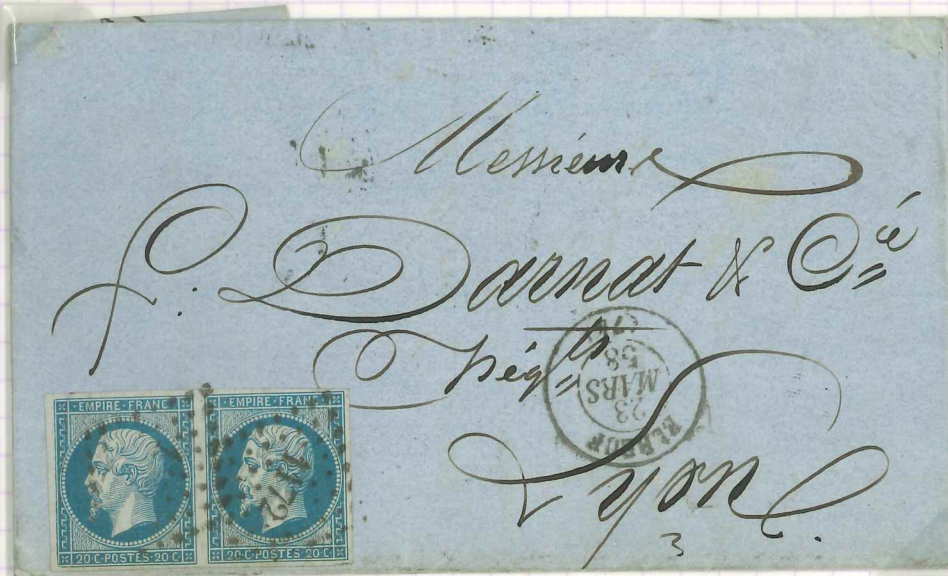 Messieurs
P. Darnat & Cie
Lyon
3
23
MARS
58
EMPIRE FRANC
20 C POSTES 20 C
EMPIRE FRANC
20 C POSTES 20 C